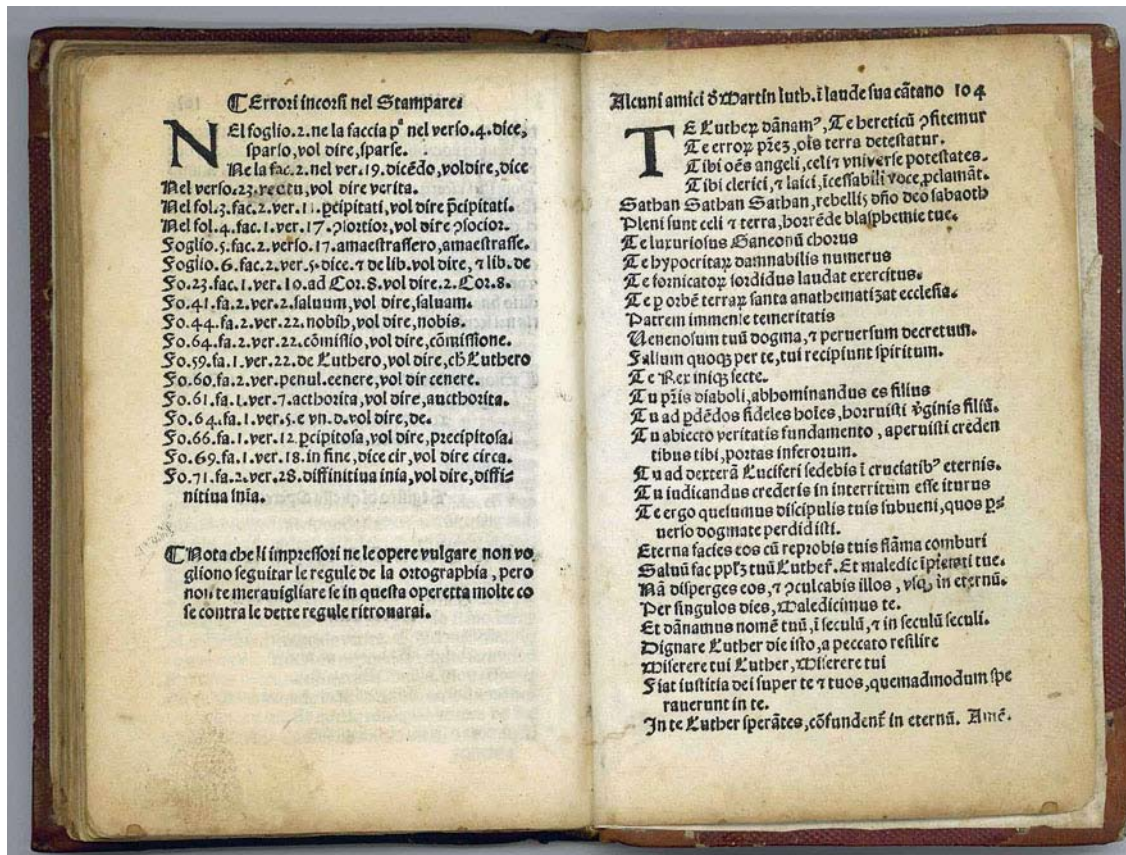 ☾ Errori incorsi nel Stampare.
NEl foglio.2.ne la faccia pª nel verso.4.dice,
sparso, vol dire, sparse.
Ne la fac.2.nel ver.19.dicẽdo, voldire, dice
Nel verso.23. vol dire verita.
Nel fol.3.fac.2.ver.11.p̱cipitati, vol dire p̄cipitati.
Nel fol.4.fac.1.ver.17.ꝯsortior, vol dire ꝯsocior.
Foglio.5.fac.2.verso.17.amaestrassero, amaestrasse.
Foglio.6.fac.2.ver.5.dice.⁊ de lib.vol dire, ⁊ lib. de
Fo.23.fac.1.ver.10.ad Cor.8.vol dire.2.Cor.8.
Fo.41.fa.2.ver.2.saluum, vol dire, saluam.
Fo.44.fa.2.ver.22.nobish, vol dire, nobis.
Fo.64.fa.2.ver.22.cõmissio, vol dire, cõmissione.
Fo.59.fa.1.ver.22.de Luthero, vol dire, ch̃ Luthero
Fo.60.fa.2.ver.penul.eenere, vol dir cenere.
Fo.61.fa.1.ver.7.acthorita, vol dire, aucthorita.
Fo.64.fa.1.ver.5.e vn.d.vol dire, de.
Fo.66.fa.1.ver.12.p̱cipitosa, vol dire, precipitosa.
Fo.69.fa.1.ver.18.in fine, dice cir, vol dire circa.
Fo.71.fa.2.ver.28.diffinitiua inia, vol dire, diffi-
nitiua inĩa.
☾ Nota che li impressori ne le opere vulgare non vo
gliono seguitar le regule de la ortographia, pero
non te merauigliare se in questa operetta molte co
se contra le dette regule ritrouarai.
Alcuni amici ð Martin luth. ĩ laude sua cãtano 104
TE Lutheꝝ dãnamꝰ, Te hereticũ ꝓfitemur
Te erroꝝ pr̃ez, oĩs terra detestatur.
Tibi oẽs angeli, celi ⁊ vniverse potestates.
Tibi clerici, ⁊ laici, ĩcessabili voce ꝓclamãt.
Sathan Sathan Sathan, rebellis dño deo sabaoth
Pleni sunt celi ⁊ terra, horrẽde blasphemie tue.
Te luxuriosus Ganeonũ chorus
Te hypocritaꝝ damnabilis numerus
Te fornicatoꝝ sordidus laudat exercitus.
Te ꝑ orbẽ terraꝝ santa anathematizat ecclesia.
Patrem immense temeritatis
Venenosum tuũ dogma, ⁊ peruersum decretum.
Falsum quoqꝫ per te, tui recipiunt spiritum.
Te Rex iniqꝫ secte.
Tu pr̃is diaboli, abhominandus es filius
Tu ad ꝑdẽdos fideles hoĩes, horruisti v̄ginis filiũ.
Tu abiecto veritatis fundamento, aperuisti creden
tibus tibi, portas inferorum.
Tu ad dexterã Luciferi sedebis ĩ cruciatibꝰ eternis.
Tu iudicandus crederis in interritum esse iturus
Te ergo quesumus discipulis tuis subueni, quos ꝑ-
uerso dogmate perdidisti.
Eterna facies eos cũ reprobis tuis flãma comburi
Saluũ fac pplꝫ tuũ Lutheř. Et maledic tue.
Nã disperges eos, ⁊ ꝯculcabis illos, vsqꝫ in eternũ.
Per singulos dies, Maledicimus te.
Et dãnamus nomẽ tuũ, ĩ seculũ, ⁊ in seculũ seculi.
Dignare Luther die isto, a peccato resilire
Miserere tui Luther, Miserere tui
Fiat iustitia dei super te ⁊ tuos, quemadmodum spe
rauerunt in te.
In te Luther sperãtes, cõfundent̃ in eternũ. Amẽ.